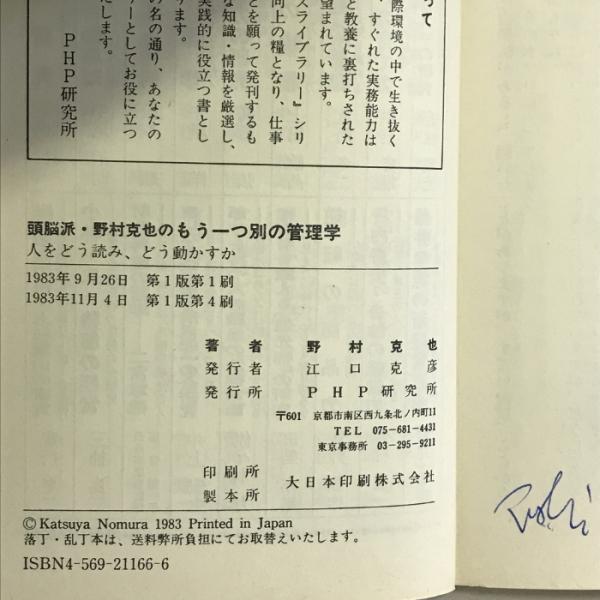 って
際環境の中で生き抜く
、すぐれた実務能力は
と教養に裏打ちされた
望まれています。
スライブラリー』シリ
向上の糧となり、仕事
とを願って発刊するも
な知識・情報を厳選し、
実践的に役立つ書とし
ります。
の名の通り、あなたの
リーとしてお役に立つ
たします。
PHP研究所
頭脳派・野村克也のもう一つ別の管理学
人をどう読み、どう動かすか
1983年9月26日 第1版第1刷
1983年11月4日 第1版第4刷
著者 野村克也
発行者 江口克彦
発行所 PHP研究所
〒601 京都市南区西九条北ノ内町11
TEL 075-681-4431
東京事務所 03-295-9211
印刷所
製本所
大日本印刷株式会社
©Katsuya Nomura 1983 Printed in Japan
落丁・乱丁本は、送料弊所負担にてお取替えいたします。
ISBN4-569-21166-6